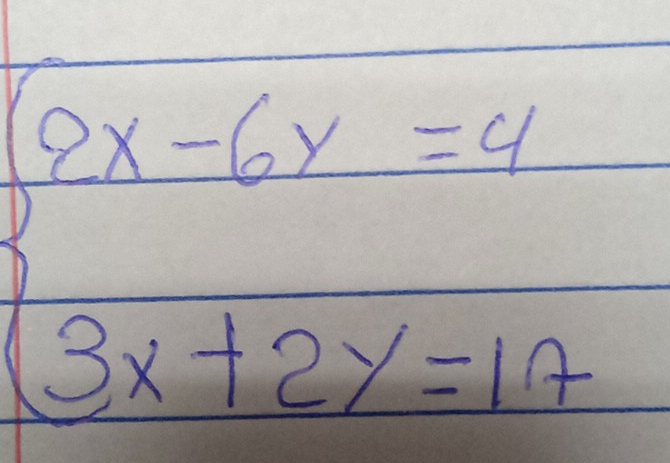 2x - 6y = 4
3x + 2y = 17